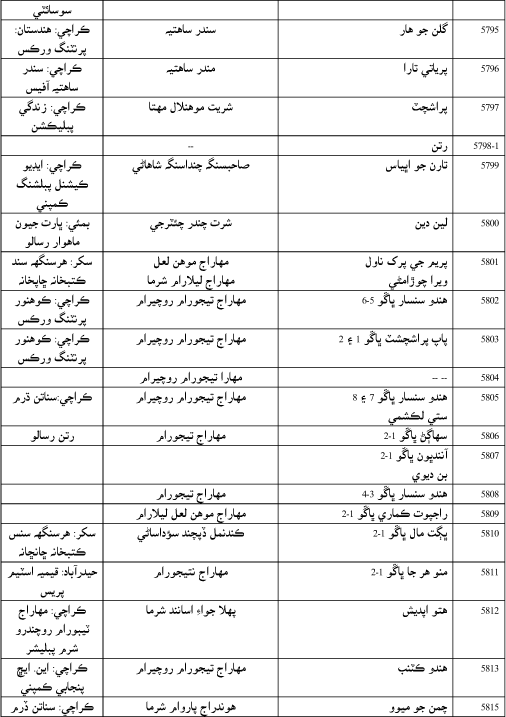 سوسائٽي
5795 گلن جو هار سندر ساهتيہ ڪراچي: هندستان:
پرنٽنگ ورڪس
5796 پرياتي تارا مندر ساهتيہ ڪراچي: سندر
ساهتيہ آفيس
5797 پراشچت شريت موهنلال مهتا ڪراچي: زندگي
پبليڪيشن
5798-1 رتن --
5799 تارن جو اڀياس صاحبسنگہ چنداسنگہ شاهاڻي ڪراچي: ايڊيو
ڪيشنل پبلشنگ
ڪمپني
5800 لين دين شرت چندر چئٽرجي بمبئي: ڀارت جيون
ماهوار رسالو
5801 پريم جي پرک ناول مهاراج موهن لعل سکر: هرسنگھ سند
ويرا چوڙامڻي مهاراج ليلارام شرما ڪتبخانہ ڇاپخانہ
5802 هندو سنسار ڀاڱو 5-6 مهاراج تيجورام روچيرام ڪراچي: ڪوهنور
پرنٽنگ ورڪس
5803 پاپ پراشچشت ڀاڱو 1 ۽ 2 مهاراج تيجورام روچيرام ڪراچي: ڪوهنور
پرنٽنگ ورڪس
5804 -- -- مهارا تيجورام روچيرام
5805 هندو سنسار ڀاڱو 7 ۽ 8 مهاراج تيجورام روچيرام ڪراچي:سناتن ڌرم
ستي لڪشمي
5806 سهاڳڻ ڀاڱو 1-2 مهاراج تيجورام رتن رسالو
5807 آننديون ڀاڱو 1-2
بن ديوي
5808 هندو سنسار ڀاڱو 3-4 مهاراج تيجورام
5809 راجپوت ڪماري ڀاڱو 1-2 مهاراج موهن لعل ليلارام
5810 ڀڳت مال ڀاڱو 1-2 ڪندنمل ڏيپچند سؤداساڻي سکر: هرسنگھ سنس
ڪتبخانہ ڇاپخانہ
5811 منو هر جا ڀاڱو 1-2 مهاراج نتيجورام حيدرآباد: قيميہ اسٽيم
پريس
5812 هتو اپديش پهلا جواءِ اسانند شرما ڪراچي: مهاراج
ٽيبورام روچندرو
شرم پبليشر
5813 هندو ڪٽنب مهاراج تيجورام روچيرام ڪراچي: اين. ايڇ
پنجابي ڪمپني
5815 چمن جو ميوو هوندراج ڀاروام شرما ڪراچي: سناتن ڌرم